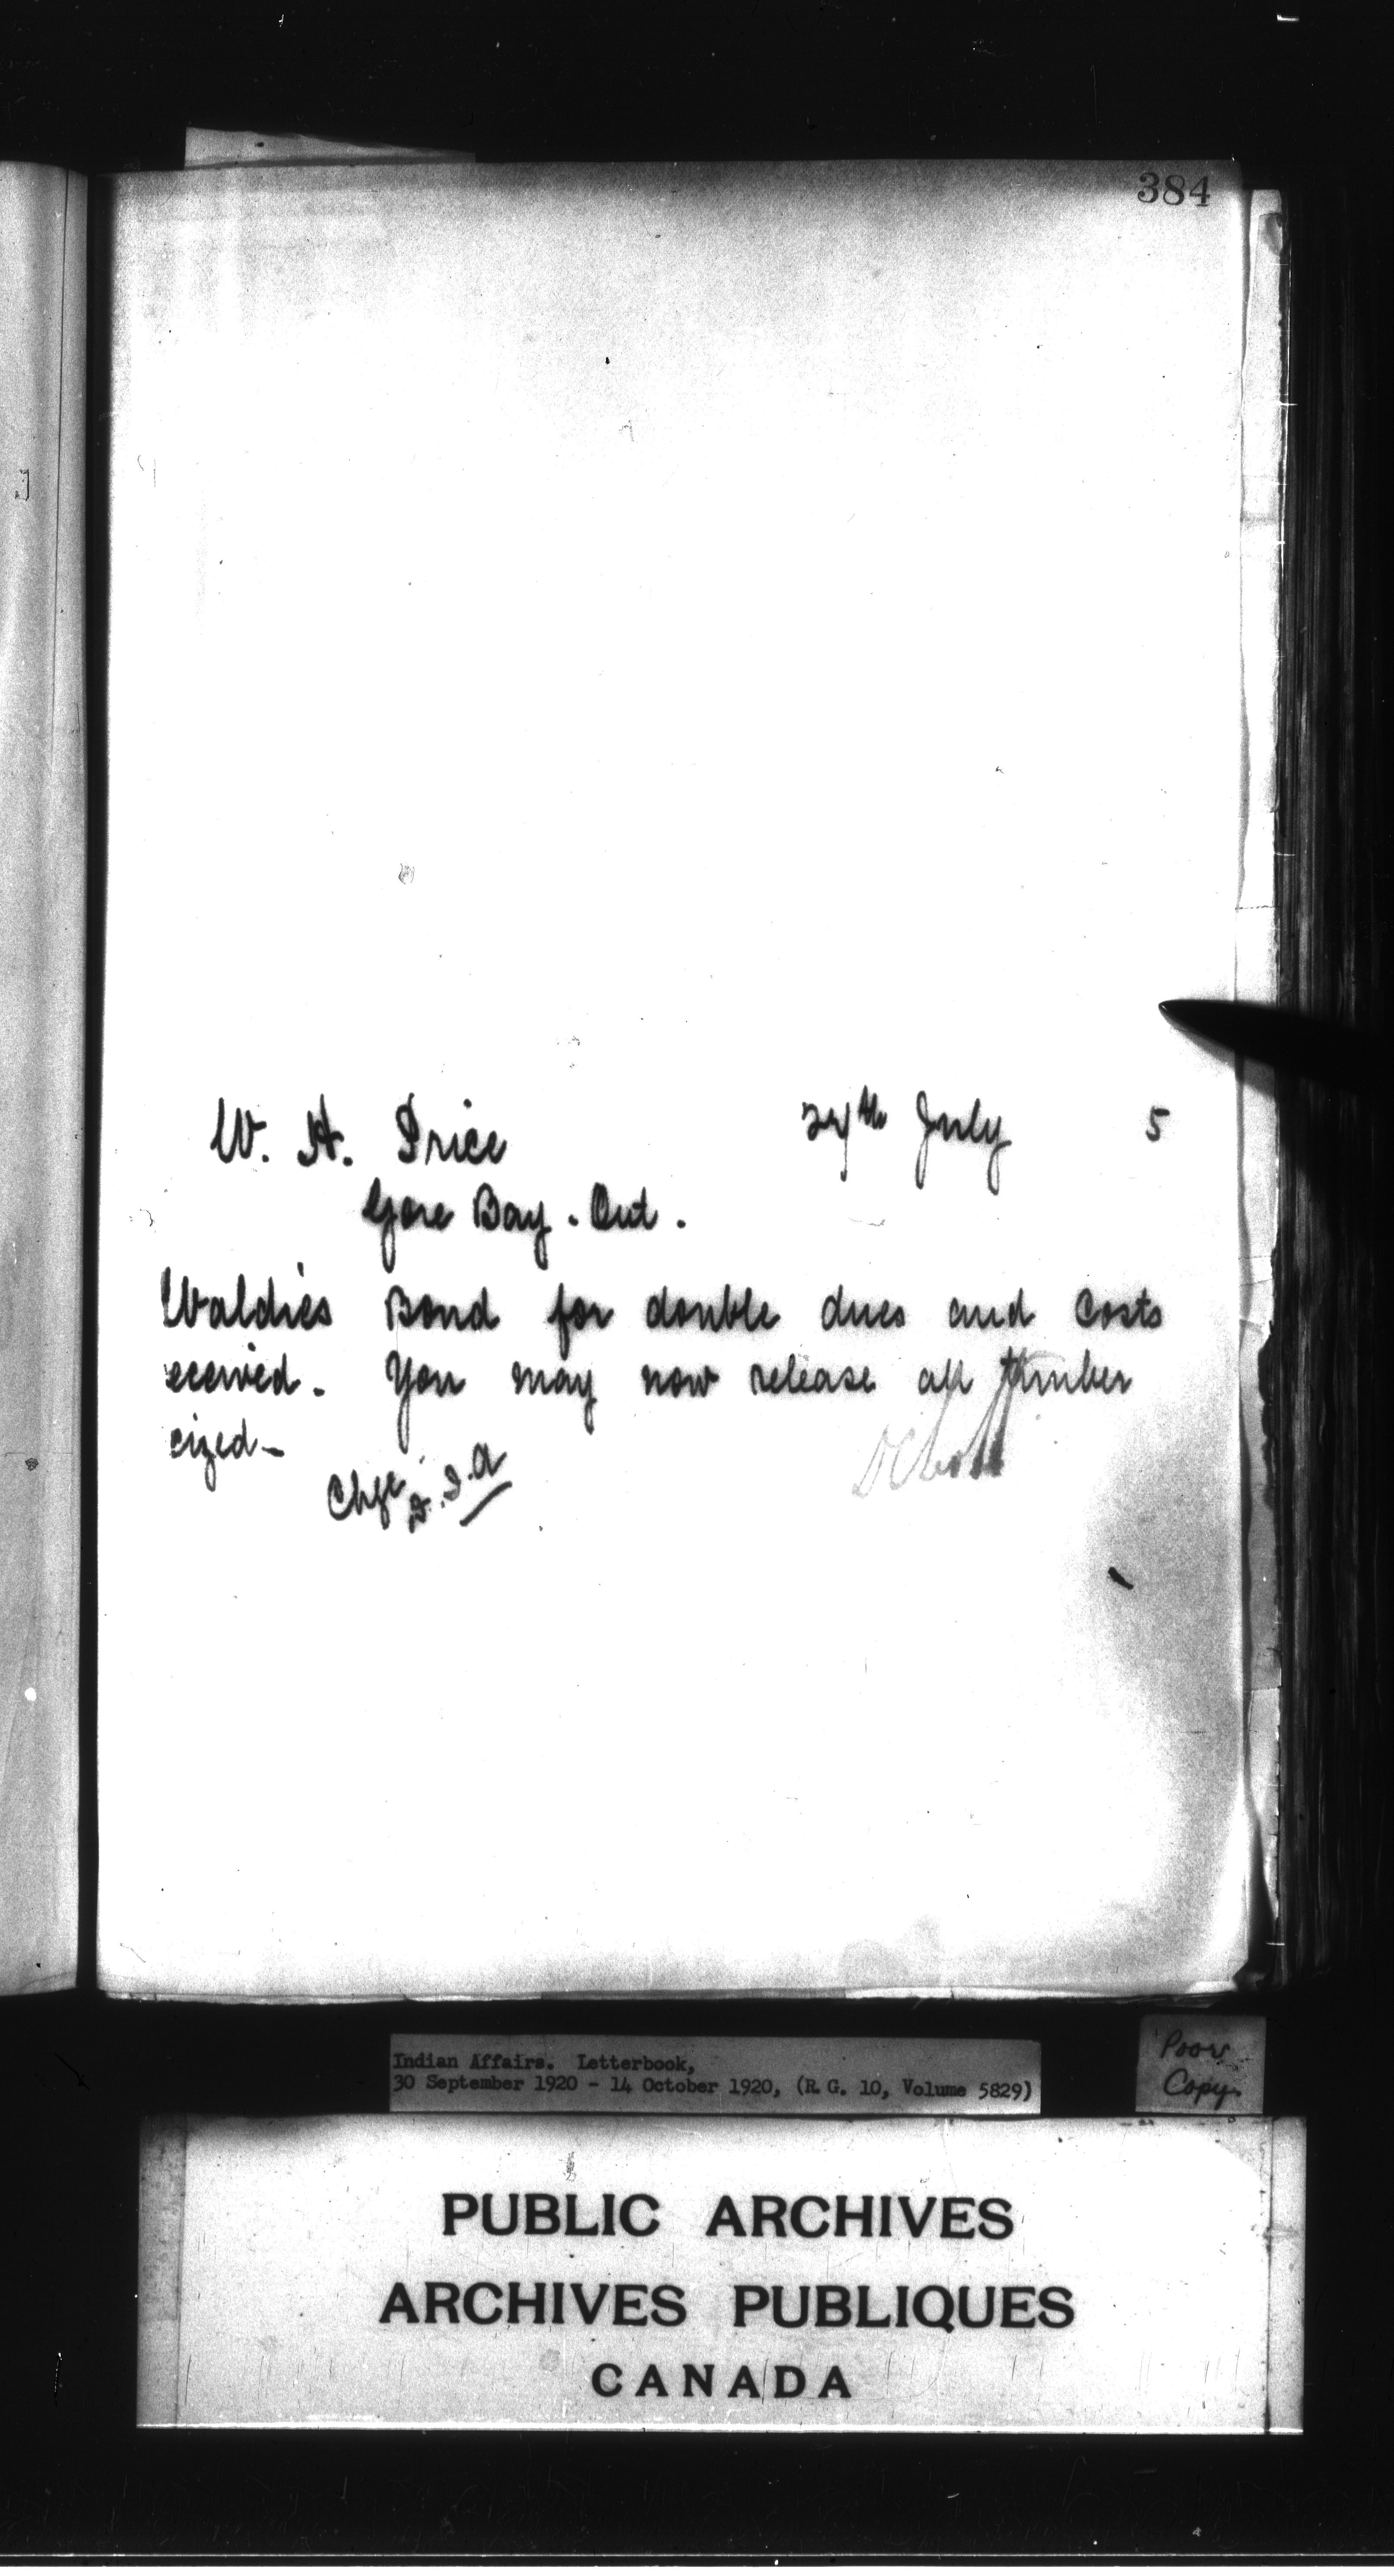 384
W. A. Price 24th July 5
Gore Bay. Ont.
Waldies Bond for double dues and costs
eceived. You may now release all timber
eized—
Chge D.I.A
Indian Affairs. Letterbook,
30 September 1920 - 14 October 1920, (R.G. 10, Volume 5829)
Poor
Copy.
PUBLIC ARCHIVES
ARCHIVES PUBLIQUES
CANADA